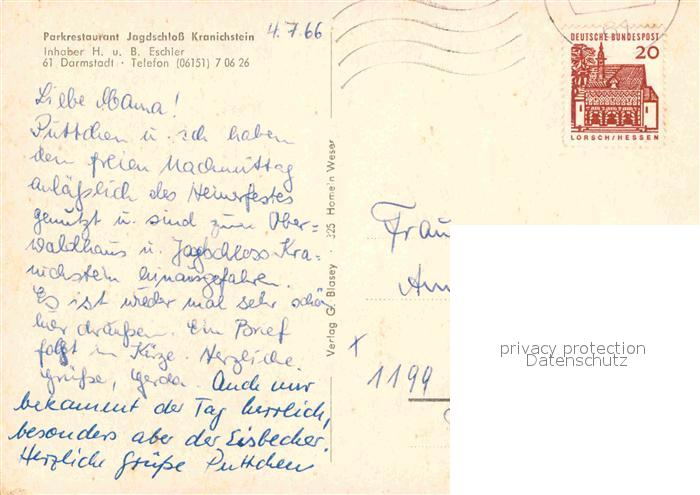 Parkrestaurant Jagdschloß Kranichstein
Inhaber H. u. B. Eschler
61 Darmstadt · Telefon (06151) 7 06 26
4.7.66
Liebe Mama!
Puttchen u. ich haben
den freien Nachmittag
anläßlich des Heinerfestes
genutzt u. sind zum Ober-
waldhaus u. Jagdschloss Kra-
nichstein hinausgefahren.
Es ist wieder mal sehr schön
hier draußen. Ein Brief
folgt in Kürze. Herzliche
Grüße, Gerda. Auch mir
bekommt der Tag herrlich,
besonders aber der Eisbecher.
Herzliche Grüße Puttchen
Verlag G. Blasey 325 Hameln Weser
DEUTSCHE BUNDESPOST
20
LORSCH/HESSEN
Frau
x
1199
privacy protection
Datenschutz